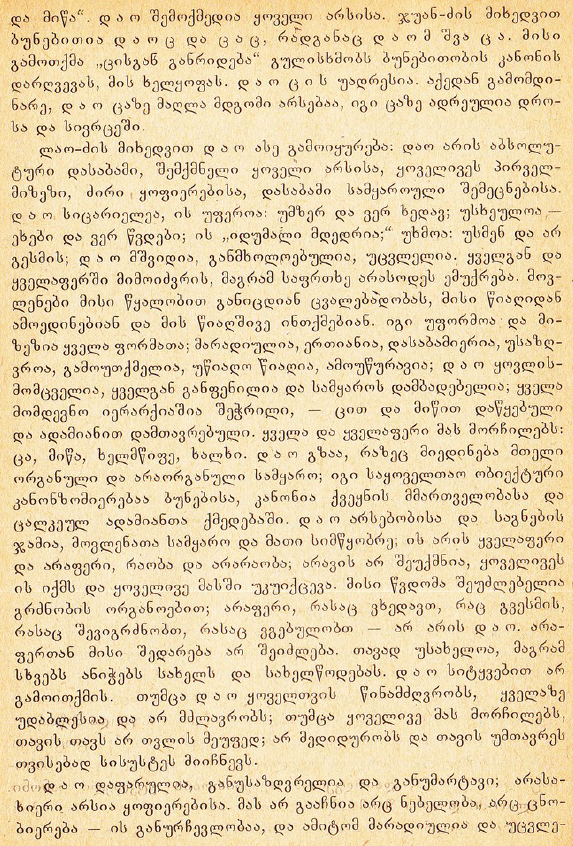 და მიწა“. დ ა ო შემოქმედია ყოველი არსისა. ჯუან-ძის მიხედვით
ბუნებითია დ ა ო ც და ც ა ც, რადგანაც დ ა ო მ შვა ც ა. მისი
გამოთქმა „ცისგან განრიდება“ გულისხმობს ბუნებითობის კანონის
დარღვევას, მის ხელყოფას. დ ა ო ც ი ს უადრესია. აქედან გამომდი-
ნარე, დ ა ო ცაზე მაღლა მდგომი არსებაა, იგი ცაზე ადრეულია დრო-
სა და სივრცეში.
ლაო-ძის მიხედვით დ ა ო ასე გამოიყურება: დაო არის აბსოლუ-
ტური დასაბამი, შემქმნელი ყოველი არსისა, ყოველივეს პირველ-
მიზეზი, ძირი ყოფიერებისა, დასაბამი სამყაროული შემეცნებისა.
დ ა ო სიცარიელეა, ის უფეროა: უმზერ და ვერ ხედავ; უსხეულოა —
ეხები და ვერ წვდები; ის „იდუმალი მდედრია;“ უხმოა: უსმენ და არ
გესმის; დ ა ო მშვიდია, განმხოლოებულია, უცვლელია. ყველგან და
ყველაფერში მიმოიძვრის, მაგრამ საფრთხე არასოდეს ემუქრება. მოვ-
ლენები მისი წყალობით განიცდიან ცვალებადობას, მისი წიაღიდან
ამოედინებიან და მის წიაღშივე ინთქმებიან. იგი უფორმოა და მი-
ზეზია ყველა ფორმათა; მარადიულია, ერთიანია, დასაბამიერია, უსაზღ-
ვროა, გამოუთქმელია, უწიაღო წიაღია, ამოუწურავია; დ ა ო ყოვლის-
მომცველია, ყველგან განფენილია და სამყაროს დამბადებელია; ყველა
მომდევნო იერარქიაშია შეჭრილი, — ცით და მიწით დაწყებული
და ადამიანით დამთავრებული. ყველა და ყველაფერი მას მორჩილებს:
ცა, მიწა, ხელმწიფე, ხალხი. დ ა ო გზაა, რაზეც მიედინება მთელი
ორგანული და არაორგანული სამყარო; იგი საყოველთაო ობიექტური
კანონზომიერებაა ბუნებისა, კანონია ქვეყნის მმართველობასა და
ცალკეულ ადამიანთა ქმედებაში. დ ა ო არსებობისა და საგნების
ჯამია, მოვლენათა სამყარო და მათი სიმწყობრე; ის არის ყველაფერი
და არაფერი, რაობა და არარაობა; არავის არ შეუქმნია, ყოველივეს
ის იქმს და ყოველივე მასში უკუიქცევა. მისი წვდომა შეუძლებელია
გრძნობის ორგანოებით; არაფერი, რასაც ვხედავთ, რაც გვესმის,
რასაც შევიგრძნობთ, რასაც ვგებულობთ — არ არის დ ა ო. არა-
ფერთან მისი შედარება არ შეიძლება. თავად უსახელოა, მაგრამ
სხვებს ანიჭებს სახელს და სახელწოდებას. დ ა ო სიტყვებით არ
გამოითქმის. თუმცა დ ა ო ყოველთვის წინამძღვრობს, ყველაზე
უდაბლესია და არ მძლავრობს; თუმცა ყოველივე მას მორჩილებს,
თავის თავს არ თვლის მეუფედ; არ მედიდურობს და თავის უმთავრეს
თვისებად სისუსტეს მიიჩნევს.
დ ა ო დაფარულია, განუსაზღვრელია და განუმარტავი; არასა-
ხიერი არსია ყოფიერებისა. მას არ გააჩნია არც ნებელობა, არც ცნო-
ბიერება — ის განურჩევლობაა, და ამიტომ მარადიულია და უცვლე-